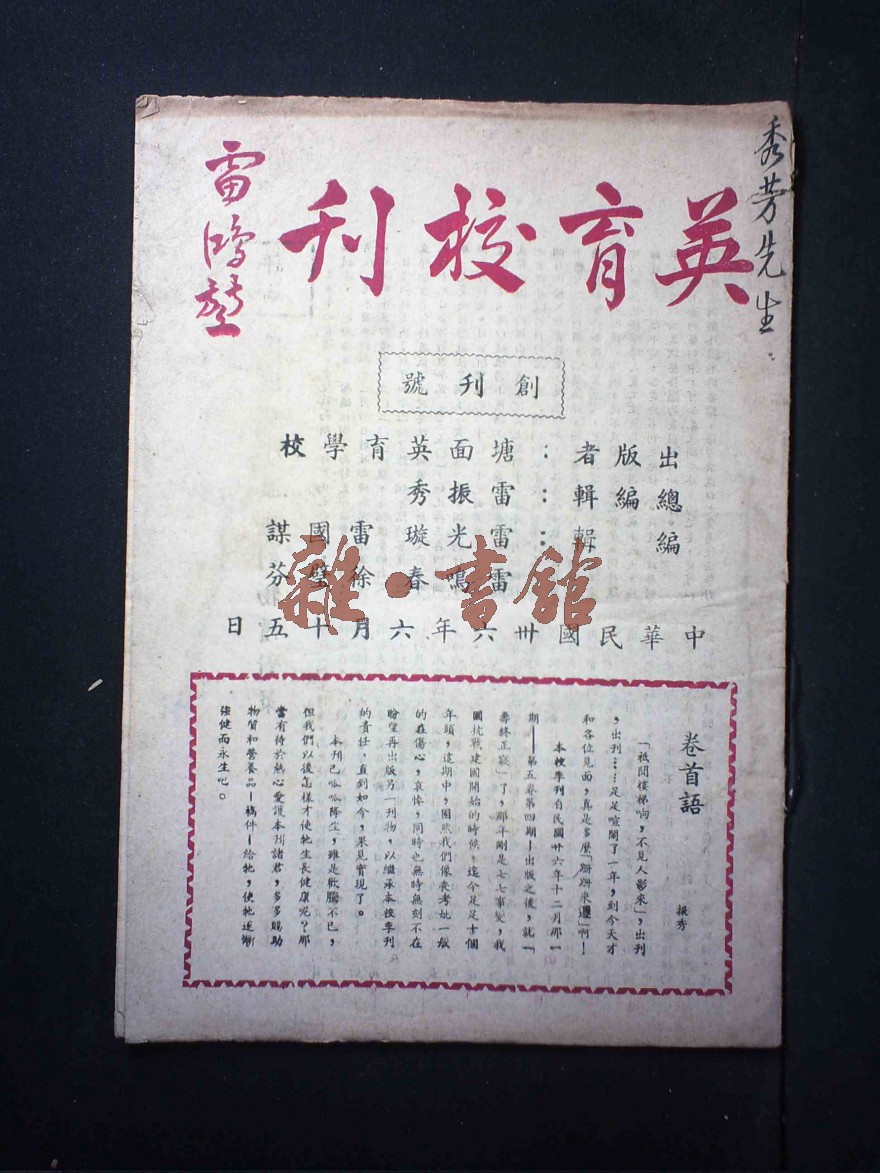 秀芳先生
英育校刊
雷鴻堃
創刊號
出版者：塘面英育學校
總編輯：雷振秀
編輯：雷光璇 雷國謀
雷鳴春 徐璧芬
中華民國卅六年六月十五日
雜·書館
卷首語
振秀
「祗聞樓梯响，不見人影來」，出刊
，出刊……足足喧鬧了一年，到今天才
和各位見面，真是多麼「姍姍來遲」啊！
本校季刊自民國廿六年十二月那一
期——第五卷第四期——出版之後，就「
壽終正寢」了，那年剛是七七事變，我
國抗戰建國開始的時候，迄今足足十個
年頭，這期中，固然我們像喪考妣一般
的在傷心，哀悼，同時也無時無刻不在
盼望再出版另一刊物，以繼承本校季刊
的責任，直到如今，果見實現了。
本刊已呱呱降生，雖是歡騰不已，
但我們以後怎樣才使牠生長健康呢？那
當有待於熱心愛護本刊諸君，多多賜助
物質和營養品——稿件——給牠，使牠逐漸
強健而永生吧。